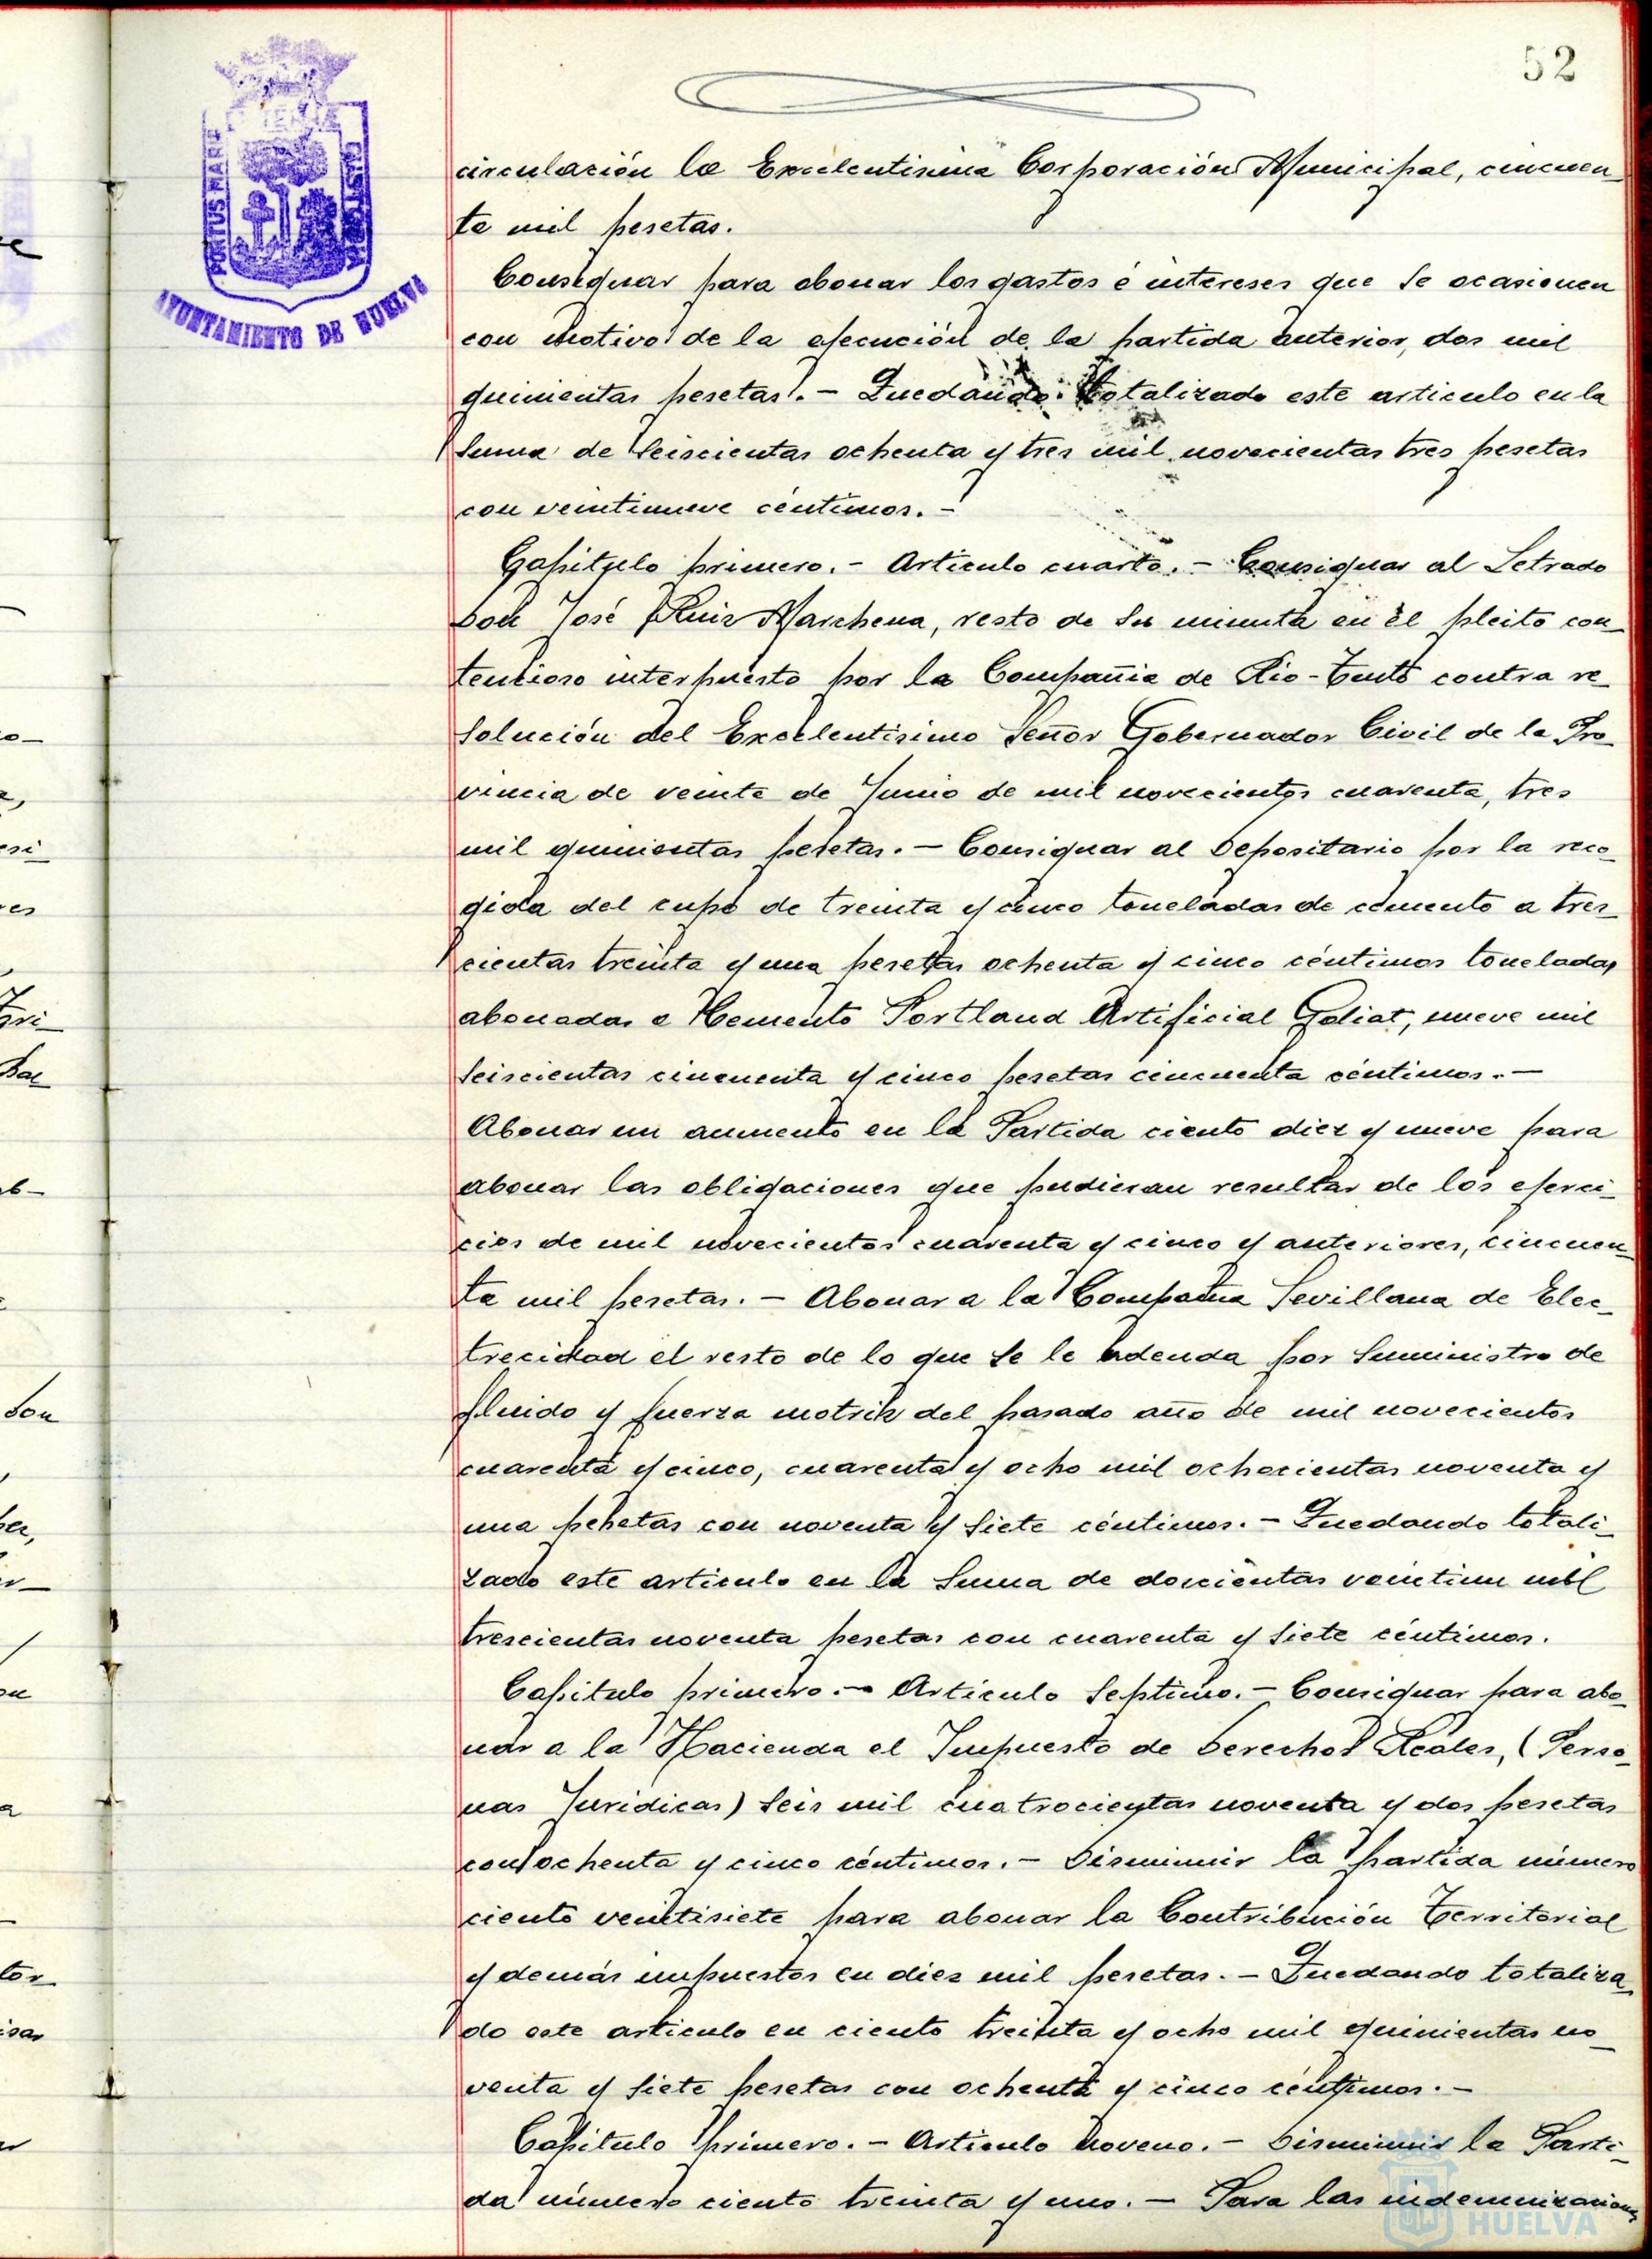 52
PORTUS MARIS
CUSTODIA
AYUNTAMIENTO DE HUELVA
circulación la Excelentisima Corporación Municipal, cincuen_
ta mil pesetas.
Consignar para abonar los gastos é intereses que se ocasionen
con motivo de la ejecución de la partida anterior, dos mil
quinientas pesetas. - Quedando totalizado este articulo en la
suma de seiscientas ochenta y tres mil novecientas tres pesetas
con veintinueve céntimos. -
Capitulo primero. - Articulo cuarto. - Consignar al Letrado
Don José Ruiz Marchena, resto de su minuta en el pleito con_
tencioso interpuesto por la Compañia de Rio-Tinto contra re_
solución del Excelentisimo Señor Gobernador Civil de la Pro_
vincia de veinte de Junio de mil novecientos cuarenta, tres
mil quinientas pesetas. - Consignar al Depositario por la reco_
gida del cupo de treinta y cinco toneladas de cemento a tres_
cientas treinta y una pesetas ochenta y cinco céntimos toneladas
abonadas a Cemento Portland Artificial Goliat, nueve mil
seiscientas cincuenta y cinco pesetas cincuenta céntimos. -
Abonar un aumento en la Partida ciento diez y nueve para
abonar las obligaciones que pudieran resultar de los ejerci_
cios de mil novecientos cuarenta y cinco y anteriores, cincuen_
ta mil pesetas. - Abonar a la Compañia Sevillana de Elec_
trecidad el resto de lo que se le adeuda por suministro de
fluido y fuerza motriz del pasado año de mil novecientos
cuarenta y cinco, cuarenta y ocho mil ochocientas noventa y
una pesetas con noventa y siete céntimos. - Quedando totali_
zado este articulo en la suma de doscientas veintiun mil
trescientas noventa pesetas con cuarenta y siete céntimos.
Capitulo primero. - Articulo Septimo. - Consignar para abo_
nar a la Hacienda el Impuesto de Derechos Reales, (Perso_
nas Juridicas) seis mil cuatrocientas noventa y dos pesetas
con ochenta y cinco céntimos. - Disminuir la partida número
ciento veintisiete para abonar la Contribución Territorial
y demás impuestos en diez mil pesetas. - Quedando totaliza_
do este articulo en ciento treinta y ocho mil quinientas no_
venta y siete pesetas con ochenta y cinco céntimos. -
Capitulo primero. - Articulo Noveno. - Disminuir la Parti_
da número ciento treinta y uno. - Para las indemnizaciones
HUELVA